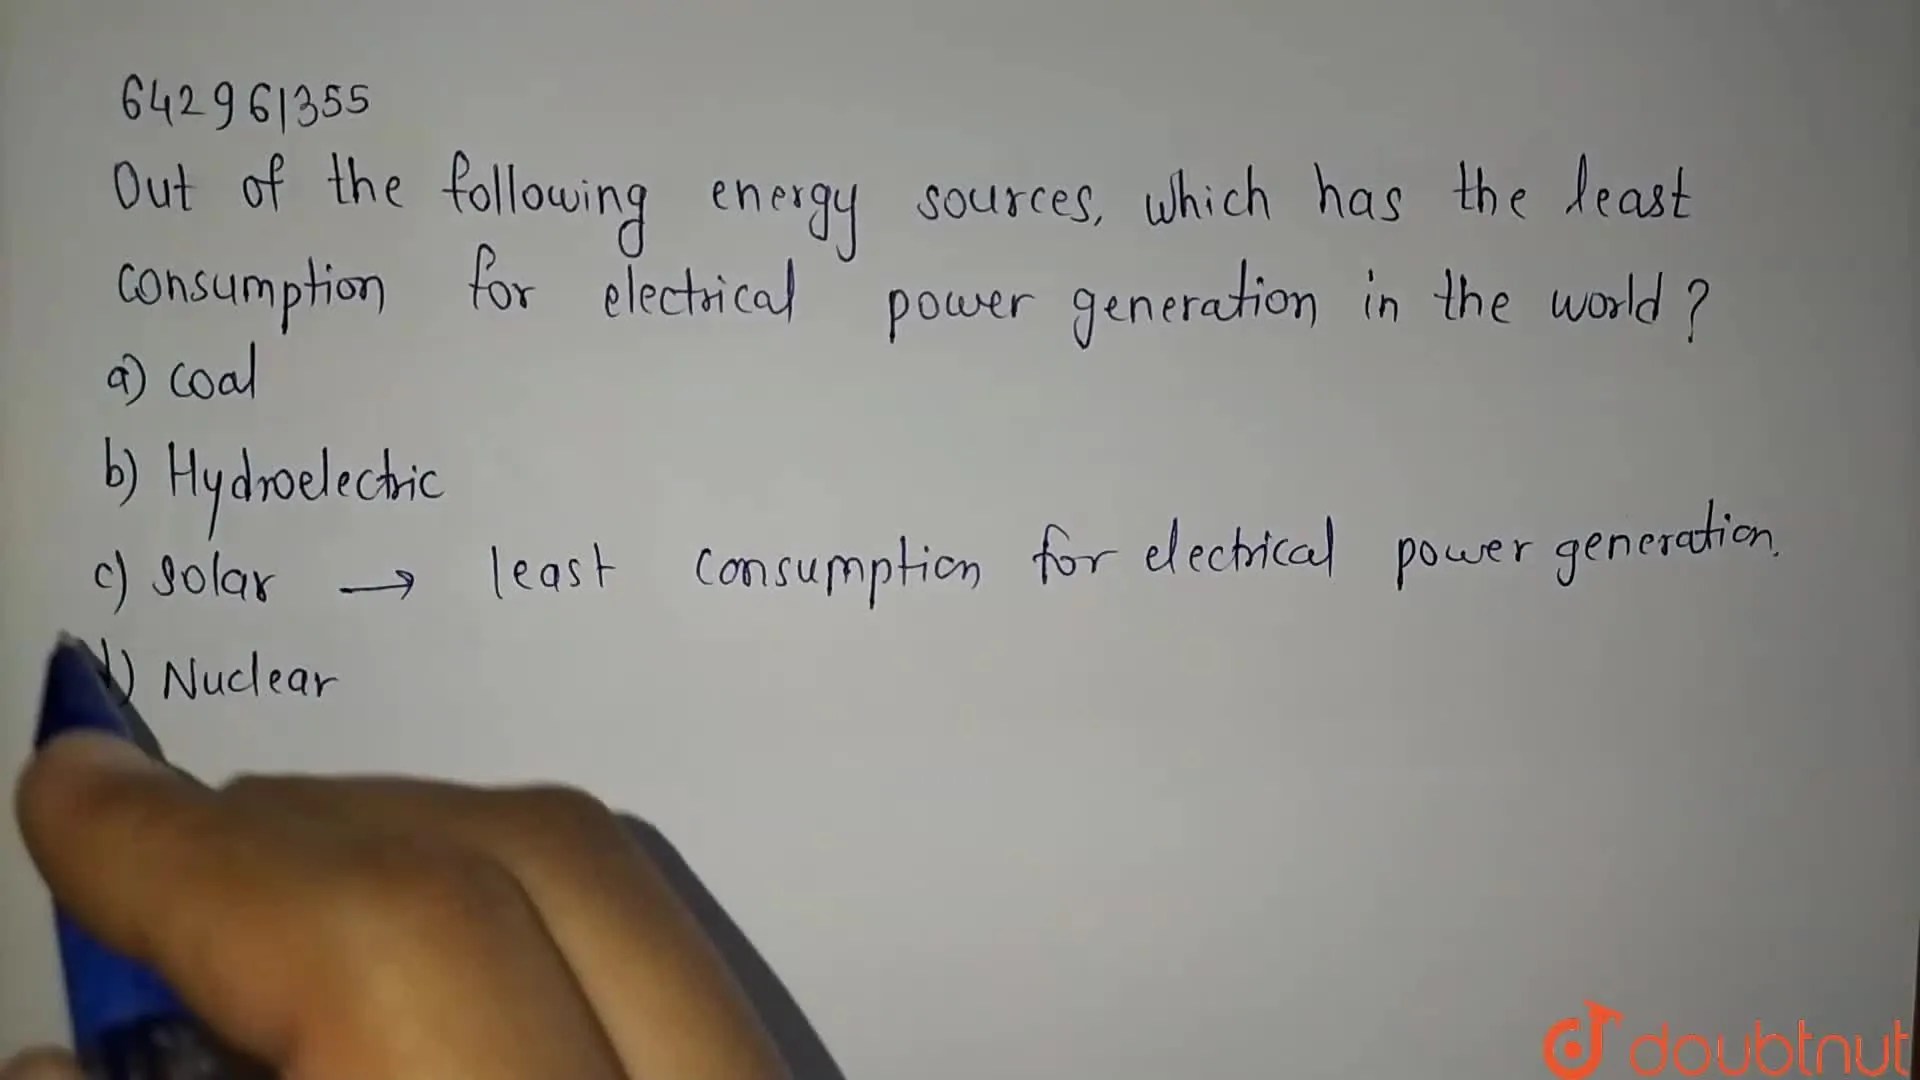 642961355
Out of the following energy sources, which has the least
consumption for electrical power generation in the world?
a) coal
b) Hydroelectric
c) solar → least consumption for electrical power generation.
d) Nuclear
doubtnut